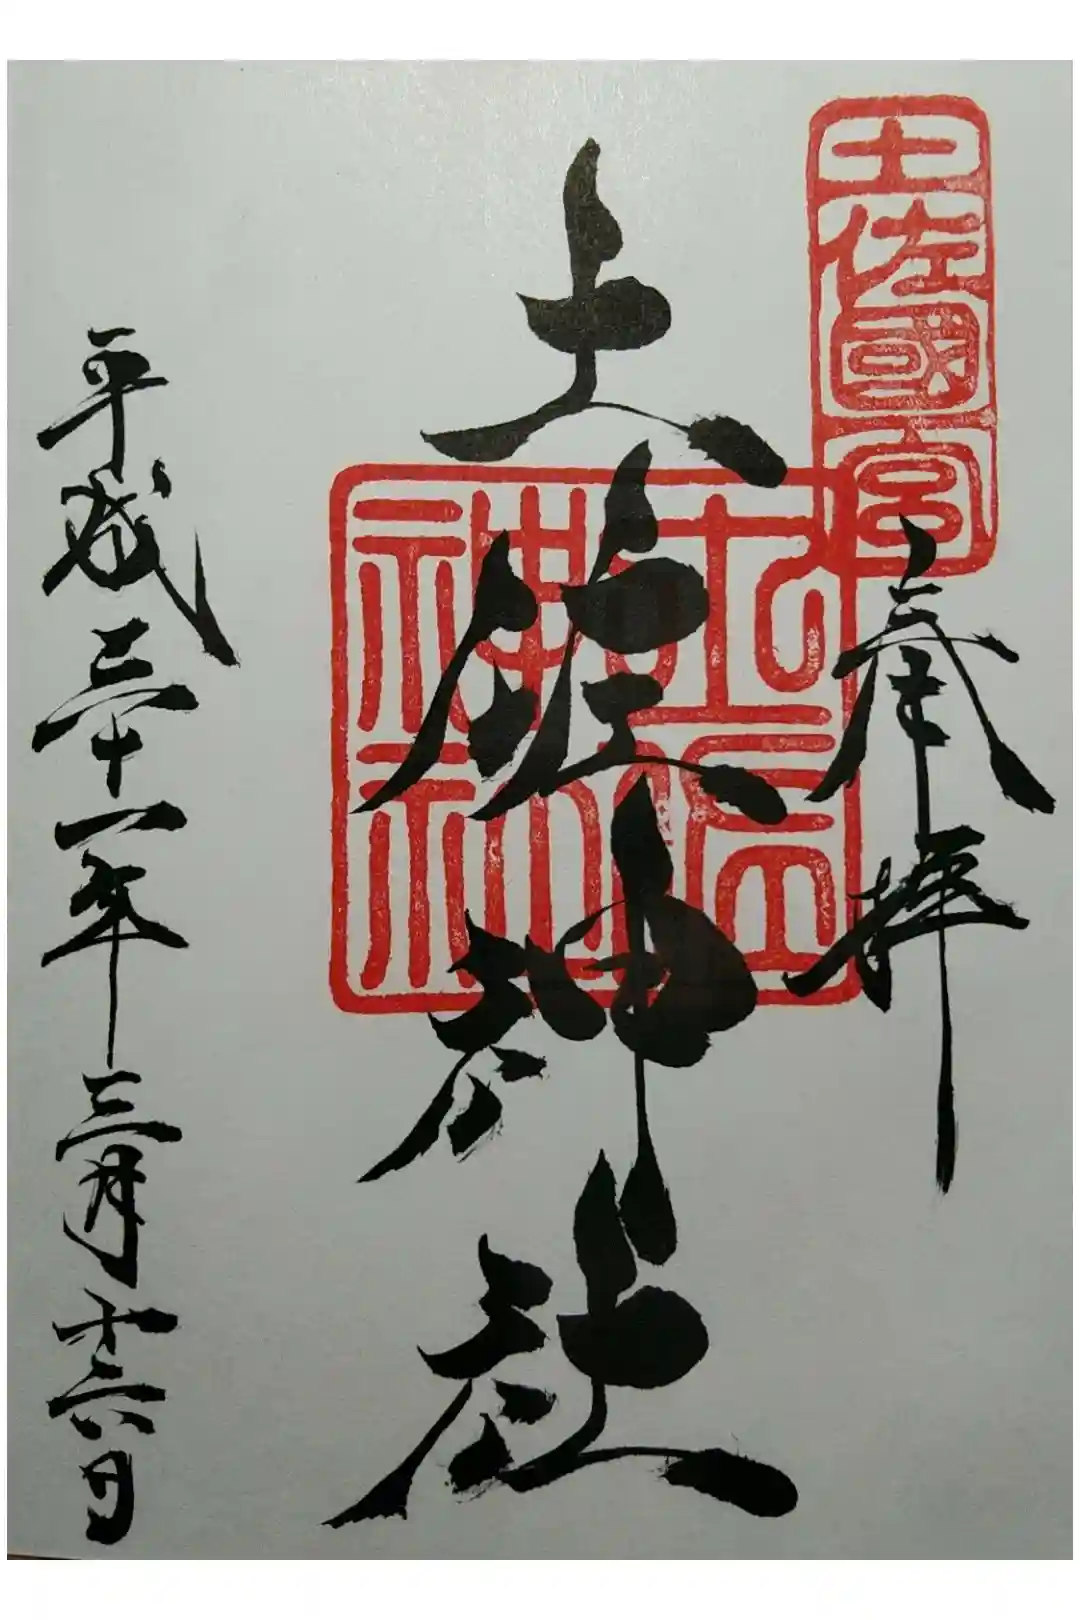 土佐國一宮
奉拝
土佐神社
平成三十一年三月十六日